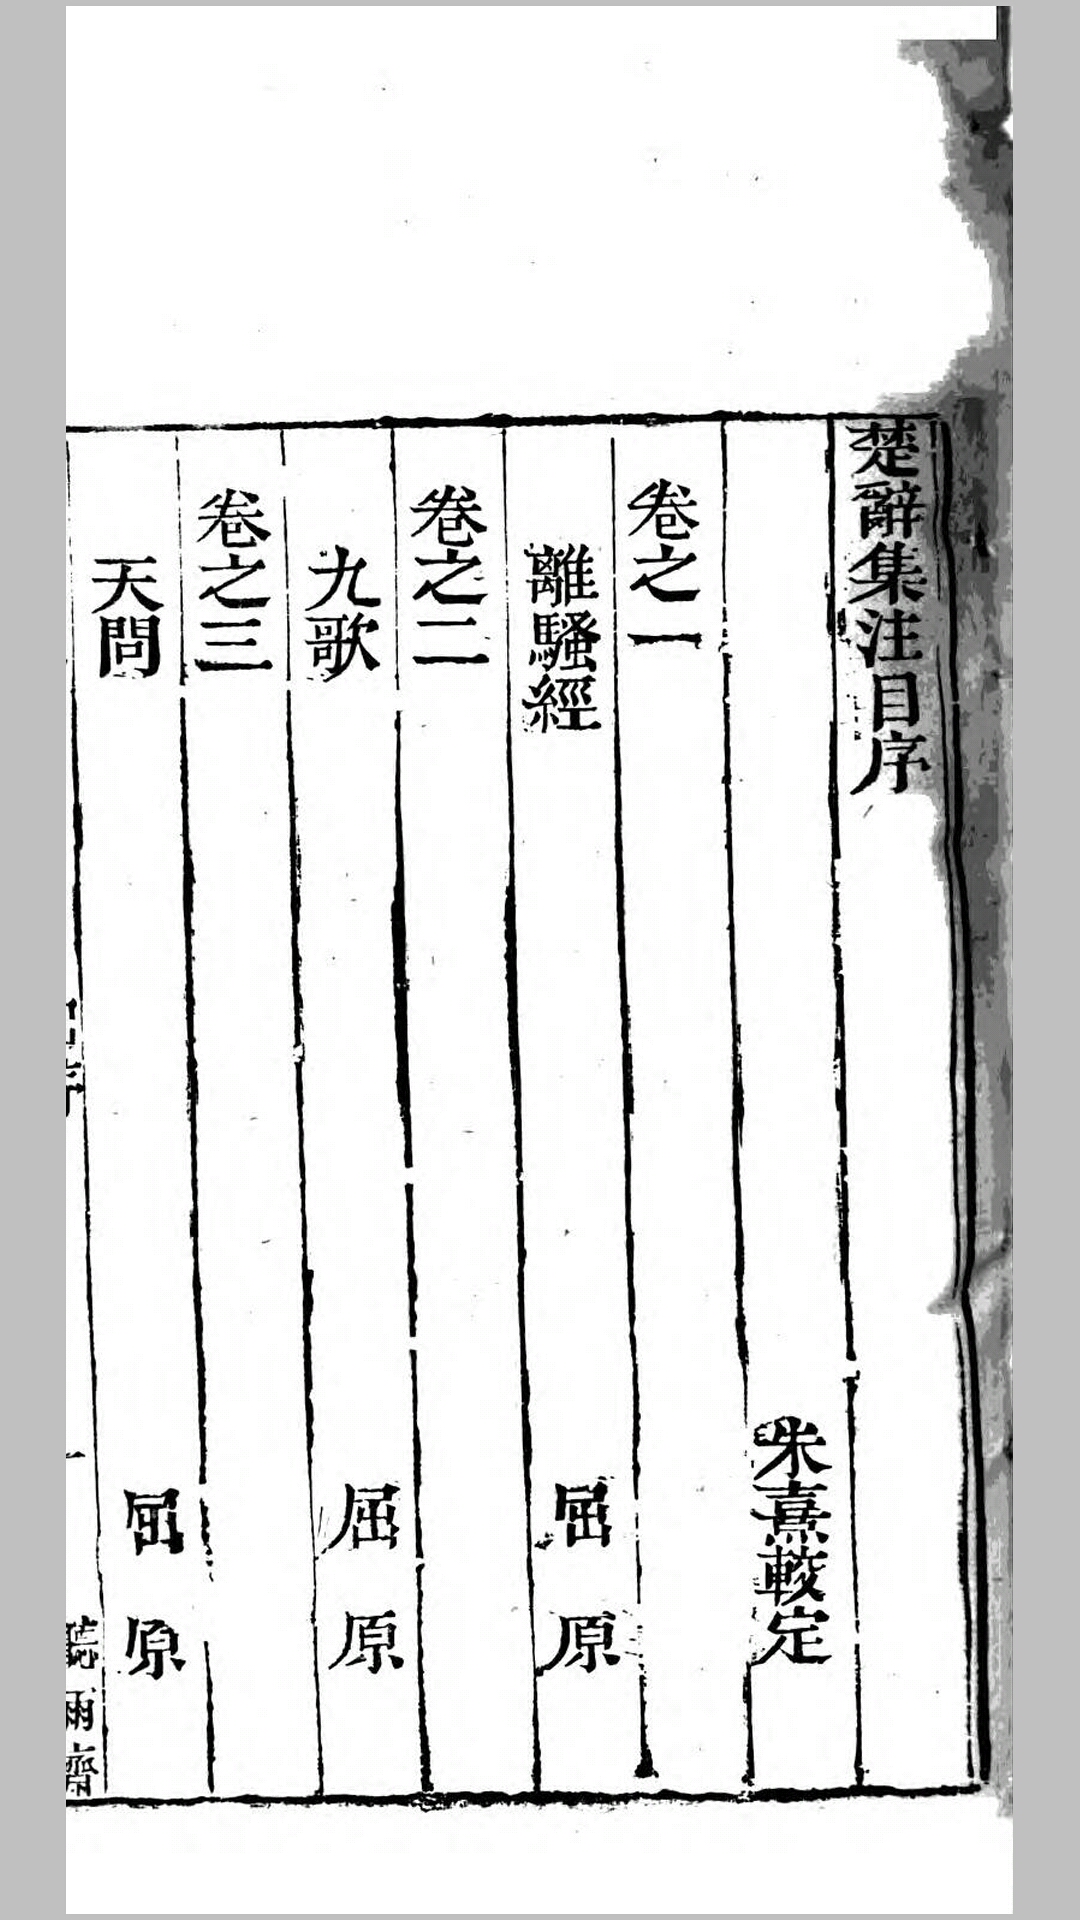 楚辭集注目序
朱熹較定
卷之一
離騷經 屈原
卷之二
九歌 屈原
卷之三
天問 屈原
聽雨齋